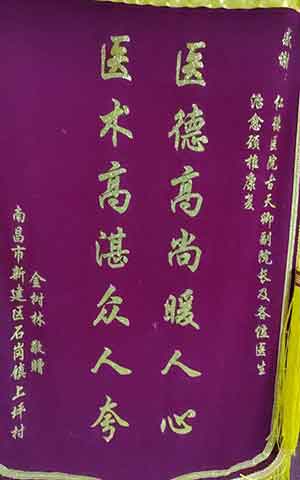 感谢:
仁德医院古天卿副院长及各位医生
治愈颈椎康复
医德高尚暖人心
医术高湛众人夸
金树林 敬赠
南昌市新建区石岗镇上坪村